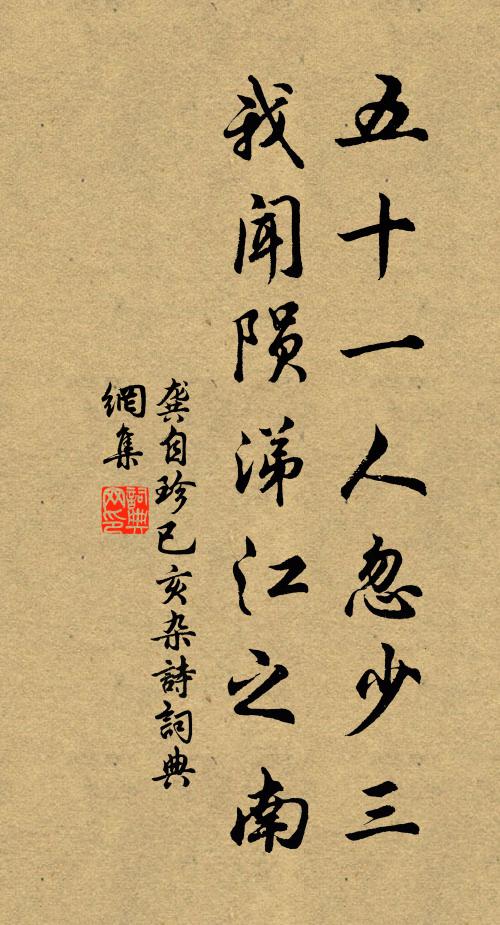 五十一人忽少三
我闻陨涕江之南
龚自珍己亥杂詩詞典
網集
詞典网印